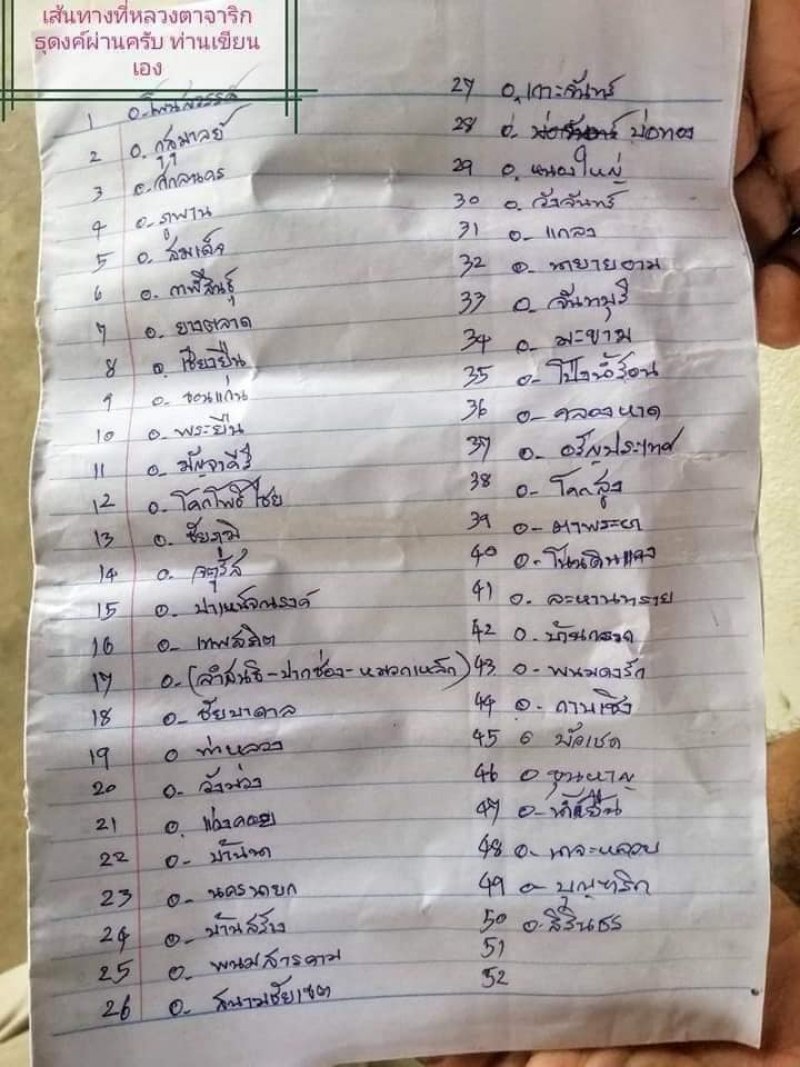 เส้นทางที่หลวงตาจาริก
ธุดงค์ผ่านครับ ท่านเขียน
เอง
1 อ-โพนสวรรค์
2 อ. กุสุมาลย์
3 อ-สกลนคร
4 อ- ภูพาน
5 อ- สมเด็จ
6 อ. กาฬสินธุ์
7 อ- ยางตลาด
8 อ. เชียงยืน
9 อ- ขอนแก่น
10 อ- พระยืน
11 อ- มัญจาคีรี
12 อ- โคกโพธิ์ไชย
13 อ. ชัยภูมิ
14 อ. จตุรัส
15 อ. บำเหน็จณรงค์
16 อ- เทพสถิต
17 อ-(ลำสนธิ-ปากช่อง-หมวกเหล็ก)
18 อ- ชัยบาดาล
19 อ ท่าหลวง
20 อ- วังม่วง
21 อ. แก่งคอย
22 อ- บ้านนา
23 อ- นครนายก
24 อ- บ้านสร้าง
25 อ. พนมสารคาม
26 อ- สนามชัยเขต
27 อ. เกาะจันทร์
28 อ่ บ่อทอง
29 อ. หนองใหญ่
30 อ. วังจันทร์
31 อ- แกลง
32 อ- นายายอาม
33 อ- จันทบุรี
34 อ- มะขาม
35 อ- โป่งน้ำร้อน
36 อ- คลองหาด
37 อ- อรัญประเทศ
38 อ- โคกสูง
39 อ- ตาพระยา
40 อ- โนนดินแดง
41 อ. ละหานทราย
42 อ. บ้านกรวด
43 อ- พนมดงรัก
44 อ- กาบเชิง
45 อ บัวเชด
46 อ ขุนหาญ
47 อ- น้ำยืน
48 อ- นาจะหลวย
49 อ- บุณฑริก
50 อ. สิรินธร
51
52